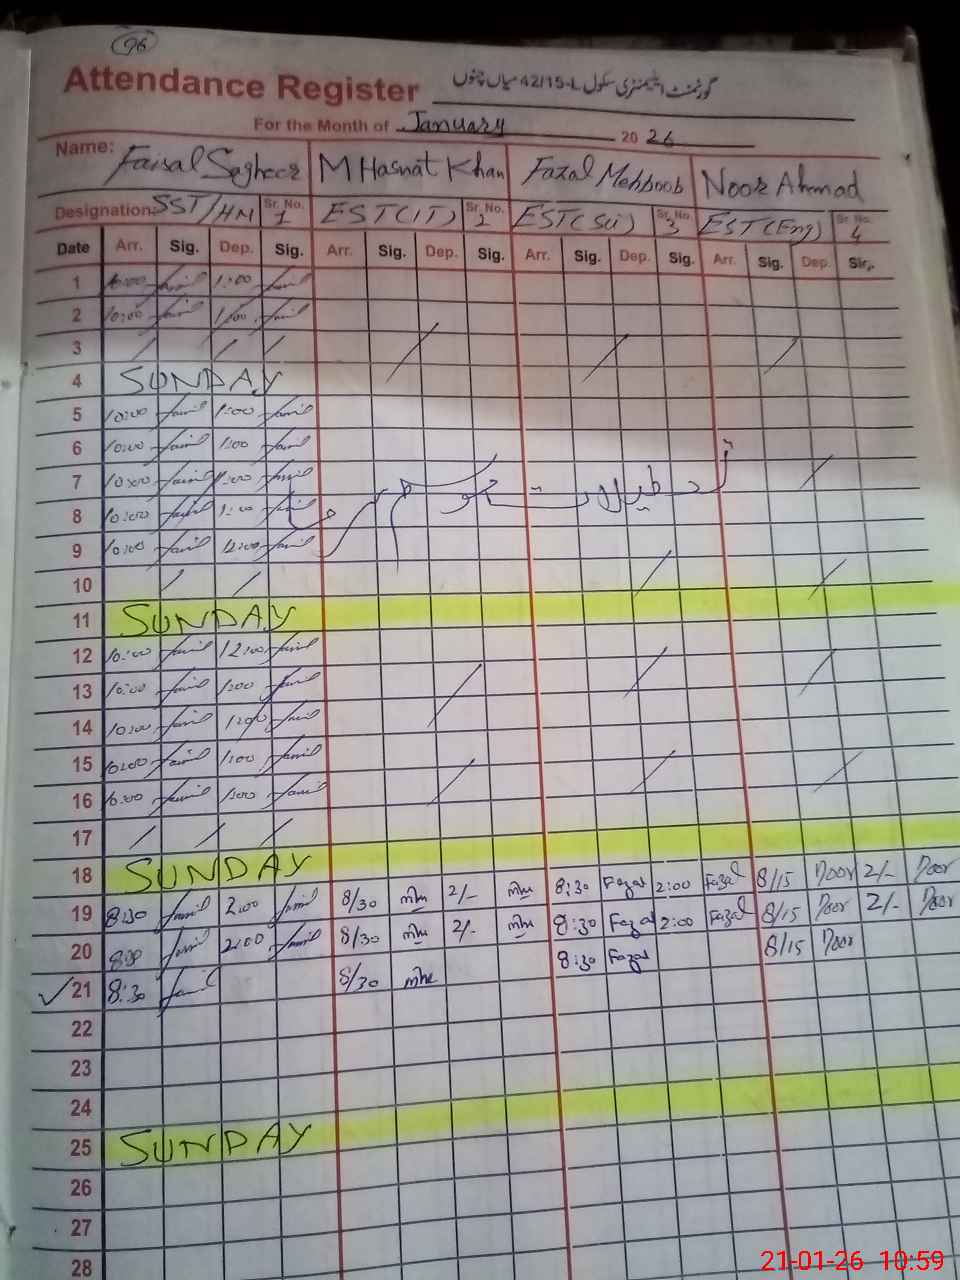 96
Attendance Register گورنمنٹ ایلیمنٹری سکول 42/15-L میاں چنوں
For the Month of January 2026
Name: Faisal Sagheer M Hasnat Khan Fazal Mehboob Noor Ahmad
Designation SST/HM Sr. No. 1 EST(IT) Sr. No. 2 EST(Sci) Sr. No. 3 EST(Eng) Sr No. 4
Date Arr. Sig. Dep. Sig. Arr. Sig. Dep. Sig. Arr. Sig. Dep. Sig. Arr. Sig. Dep. Sig.
1 10:00 1:00
2 10:00 1:00
3
4 SUNDAY
5 10:00 1:00
6 10:00 1:00
7 10:00 1:00
8 10:00 1:00
9 10:00 12:00
تعطیلات موسم سرما
10
11 SUNDAY
12 10:00 12:00
13 10:00 1:00
14 10:00 1:00
15 10:00 1:00
16 10:00 1:00
17
18 SUNDAY
19 8:30 2:00 8/30 2/- 8:30 Fazal 2:00 Fazal 8/15 Noor 2/- Noor
20 8:30 2:00 8/30 2/- 8:30 Fazal 2:00 Fazal 8/15 Noor 2/- Noor
21 8:30 8/30 8:30 Fazal 8/15 Noor
22
23
24
25 SUNDAY
26
27
28
21-01-26 10:59